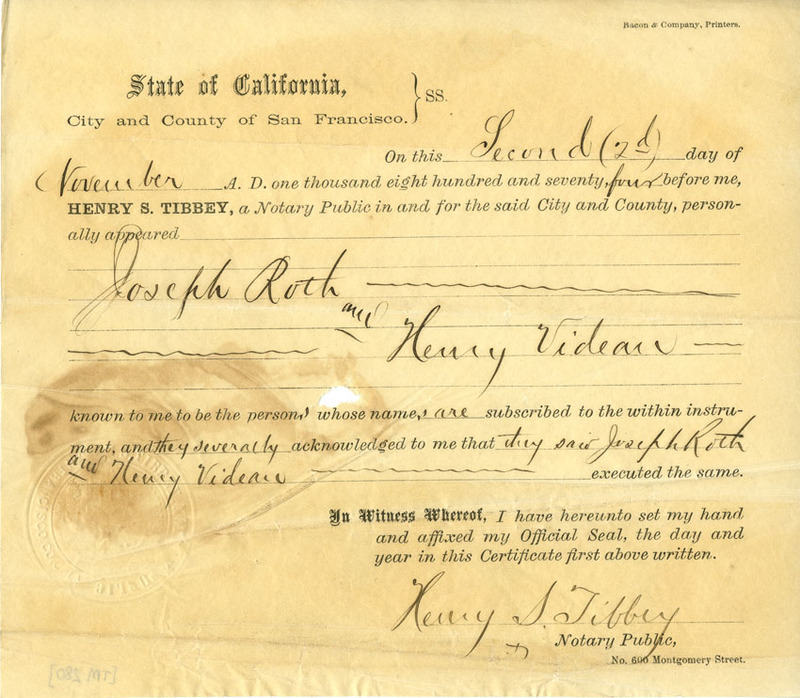 Bacon & Company, Printers.
State of California,
City and County of San Francisco. } SS.
On this Second (2d) day of
November A. D. one thousand eight hundred and seventy, four before me,
HENRY S. TIBBEY, a Notary Public in and for the said City and County, person-
ally appeared
Joseph Roth
and Henry Videau
known to me to be the persons whose names are subscribed to the within instru-
ment, and they severally acknowledged to me that they said Joseph Roth
and Henry Videau executed the same.
In Witness Whereof, I have hereunto set my hand
and affixed my Official Seal, the day and
year in this Certificate first above written.
Henry S. Tibbey
Notary Public,
No. 600 Montgomery Street.